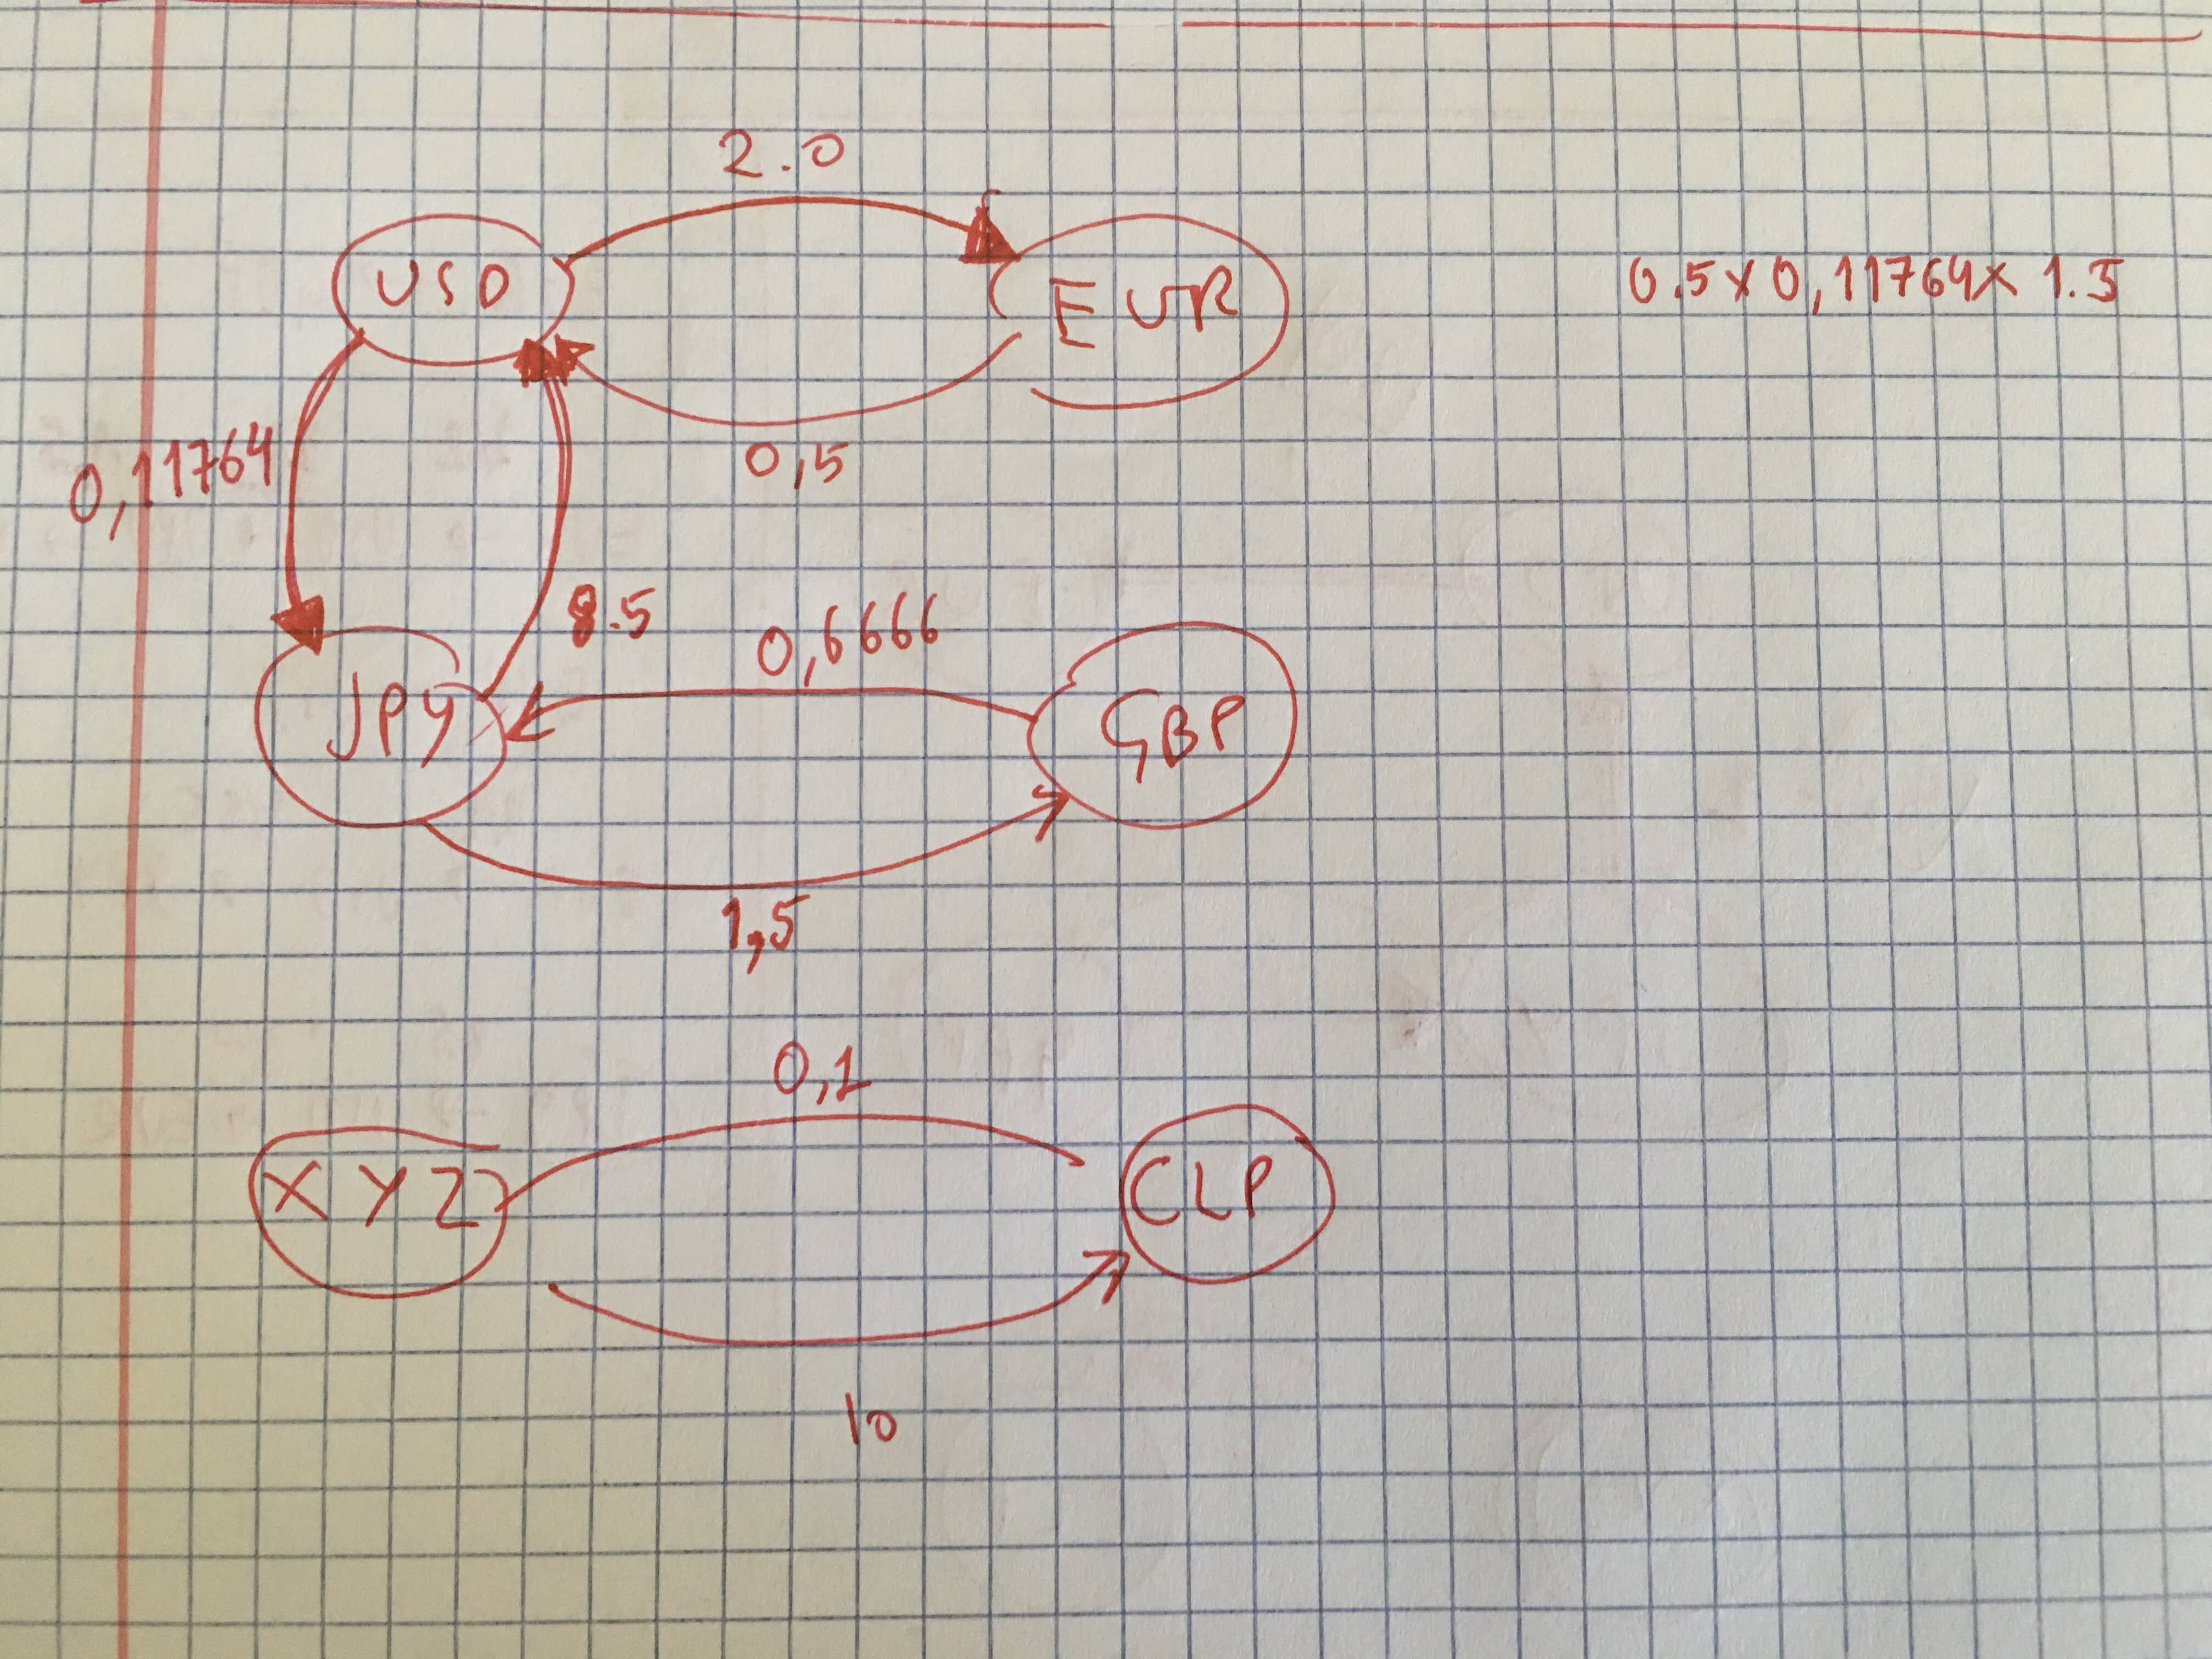 2.0
USD
EUR
0.5 x 0,11764 x 1.5
0,5
0,11764
8.5
0,6666
JPY
GBP
1,5
0,1
XYZ
CLP
10